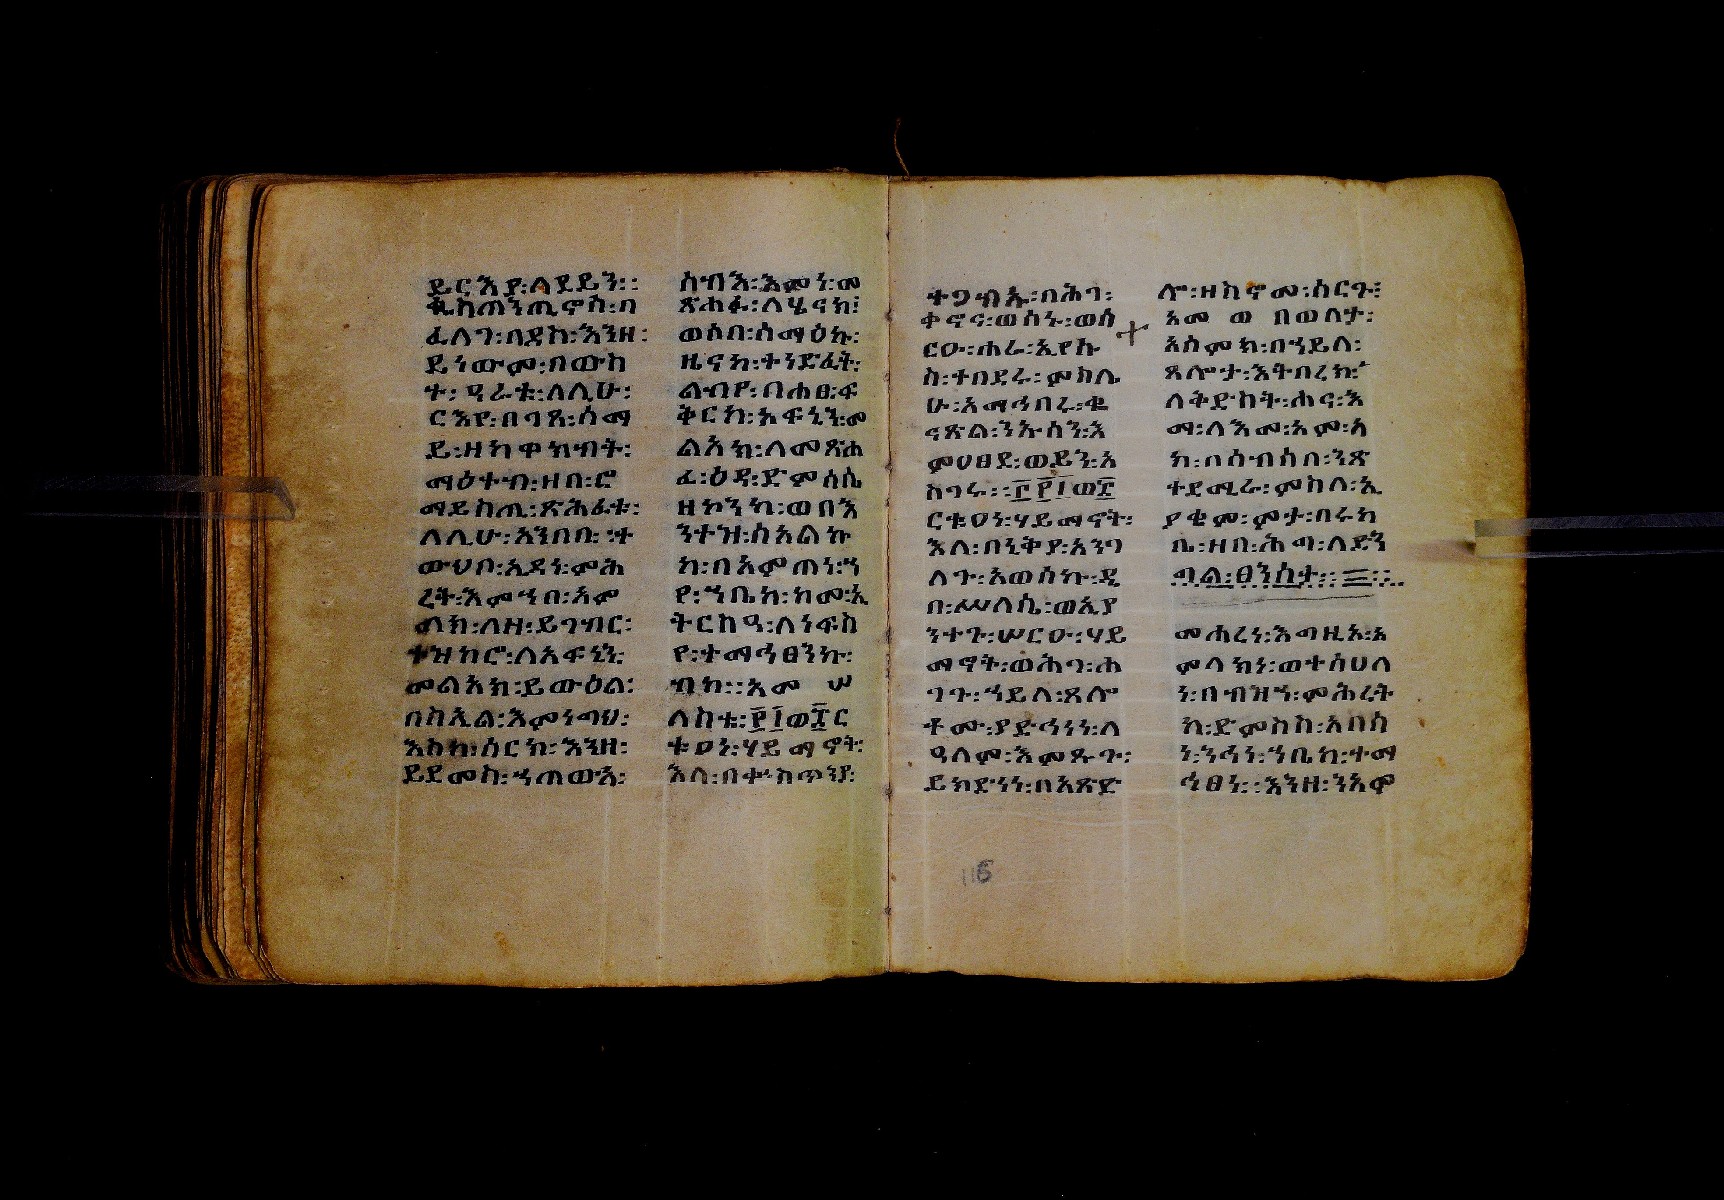 ይርእያ፡ለደይን፡፡
ቈስጠንጢኖስ፡በ
ፈለገ፡ባደክ፡እንዘ፡
ይነውም፡በውስ
ተ፡ዓራቱ፡ለሊሁ፡
ርእየ፡በገጸ፡ሰማ
ይ፡ዘከዋክብት፡
ማዕተብ፡ዘበ፡ሮ
ማይስጢ፡ጽሕፈቱ፡
ለሊሁ፡አንበበ፡፡ተ
ውህቦ፡አዳነ፡ምሕ
ረት፡እምኀበ፡አም
ላክ፡ለዘ፡ይገብር፡
ተዝከሮ፡ለአፍኒን፡
መልአክ፡ይውዕል፡
በስኢል፡እምነግህ፡
እስከ፡ሰርክ፡እንዘ፡
ይደመስ፡ኀጠወእ፡
ስብእ፡እምነ፡መ
ጽሐፉ፡ለሄኖክ፡
ወሶበ፡ሰማዕኩ፡
ዜናከ፡ተነድፈት፡
ልብየ፡በሐፀ፡ፍ
ቅርከ፡አፍኒን፡መ
ልአክ፡ለመጽሐ
ፈ፡ዕዳ፡ደምሳሲ
ዘኮንከ፡ወበእ
ንተዝ፡ስአልኩ
ከ፡በአምጠነ፡ኀ
የ፡ኀቤከ፡ከመ፡ኢ
ትርከዓ፡ለነፍስ
የ፡ተማኅፀንኩ፡
ብከ፡፡አመ ሠ
ለስቱ፡፫፻፲ወ፰ር
ቱዐነ፡ሃይማኖት፡
እለ፡በቍስጥንያ፡
ተጋብኡ፡በሕገ፡
ቀኖና፡ወሰኑ፡ወሰ
ርዑ፡ሐራ፡ኢየሱ
ስ፡ተበደሩ፡ምክሌ
ሁ፡አማኅበሩ፡ቁ
ናጽል፡ንኡሰን፡እ
ምሀፀደ፡ወይን፡አ
ስገሩ፡፡፫፻፲ወ፰
ርቱዐነ፡ሃይማኖት፡
እለ፡በኒቅያ፡አንባ
ለጉ፡አወስኩ፡ዲ
በ፡ሥላሴ፡ወኢያ
ንተጉ፡ሠርዑ፡ሃይ
ማኖት፡ወሕገ፡ሐ
ገጉ፡ኀይለ፡ጸሎ
ቶሙ፡ያድኅነነ፡ለ
ዓለም፡እምጹጉ፡
ይክድነነ፡በአጽድ
ሎ፡ዘከኖመ፡ስርጉ፡
አመ ወ በወለታ፡
አስምክ፡በኀይለ፡
ጸሎታ፡እትበረክ፡
ለቅድስት፡ሐና፡እ
ማ፡ለእመ፡አም፡ላ
ክ፡በሰብሰበ፡ንጽ
ተደሚራ፡ምስለ፡ኢ
ያቄም፡ምታ፡በሩካ
ቤ፡ዘበ፡ሕግ፡ለደን
ግል፡ፀንሰት፡፡
መሐረነ፡እግዚአ፡አ
ምላክነ፡ወተሰሀለ
ነ፡በብዝኀ፡ምሕረት
ከ፡ደምስስ፡አበሳ
ነ፡ንኅነ፡ኀቤከ፡ተማ
ኅፀነ፡፡እንዘ፡ንአም
116